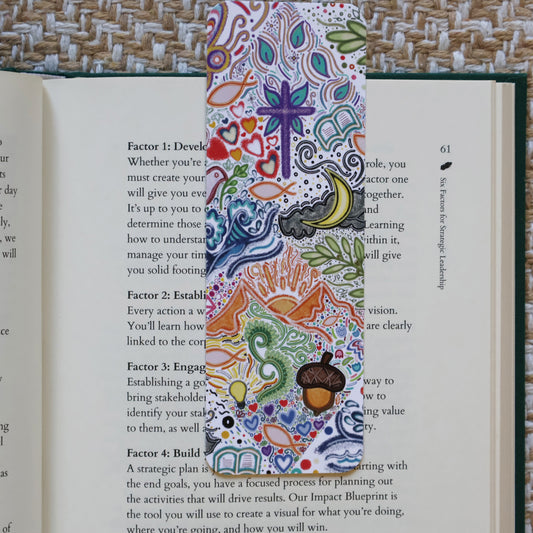 ur
ts
r day
ly,
, we
will
ce
y
s
as
of
61
Six Factors for Strategic Leadership
Factor 1: Develo
Whether you're a role, you
must create your actor one
will give you eve together.
It's up to you to and
determine those Learning
how to understan within it,
manage your tim will give
you solid footing
Factor 2: Establi
Every action a w vision.
You'll learn how are clearly
linked to the cor
Factor 3: Engag
Establishing a go way to
bring stakeholder
identify your stak ing value
to them, as well a rity.
Factor 4: Build
A strategic plan is y tarting with
the end goals, you have a focused process for planning out
the activities that will drive results. Our Impact Blueprint is
the tool you will use to create a visual for what you're doing,
where you're going, and how you will win.